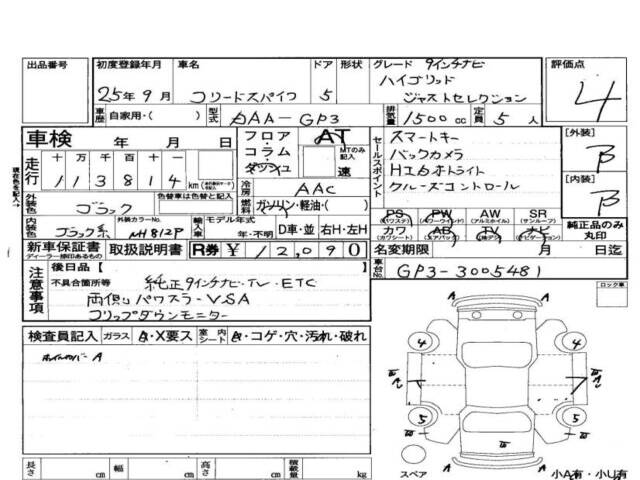 出品番号 初度登録年月 車名 ドア 形状 グレード 9インチナビ 評価点
ハイブリッド
25年9月 フリードスパイク 5 ジャストセレクション 4
車歴 自家用・( ) 型式 DAA-GP3 排気量 1500cc 定員 5人
車検 年 月 日 フロア・コラム・ダッシュ AT MTのみ記入 速 セールスポイント スマートキー [外装] B
バックカメラ
走行 十万千百十 113814km HIDライト
冷房 AAC クルーズコントロール [内装] B
外装色 ブラック 色替車は色替と記入 燃料 ガソリン・軽油・( )
PS PW AW SR
(パワステ) (パワーウインド) (アルミホイル) (サンルーフ)
内装色 ブラック系 外装カラーNo. NH812P 輸入車 モデル年式 年・不明 D車・並 右H・左H カワ AB TV ナビ 純正品のみ丸印
(カワシート) (エアバック) (ナビゲーション)
新車保証書 ディーラー捺印あるもの 取扱説明書 R券 ¥12,090 名変期限 月 日迄
車台No. GP3-3005481
注意事項 後日品[ ]
不具合箇所等 純正9インチナビ・TV・ETC
両側パワスラ・VSA
フリップダウンモニター
ロック車
検査員記入 ガラス A・X要ス 室内シート A・コゲ・穴・汚れ・破れ
ホイルカバー A
A
4 4
A
5 5
A
長さ cm 幅 cm 高さ cm 積載量 kg スペア 小A有・小U有
現在色を記入